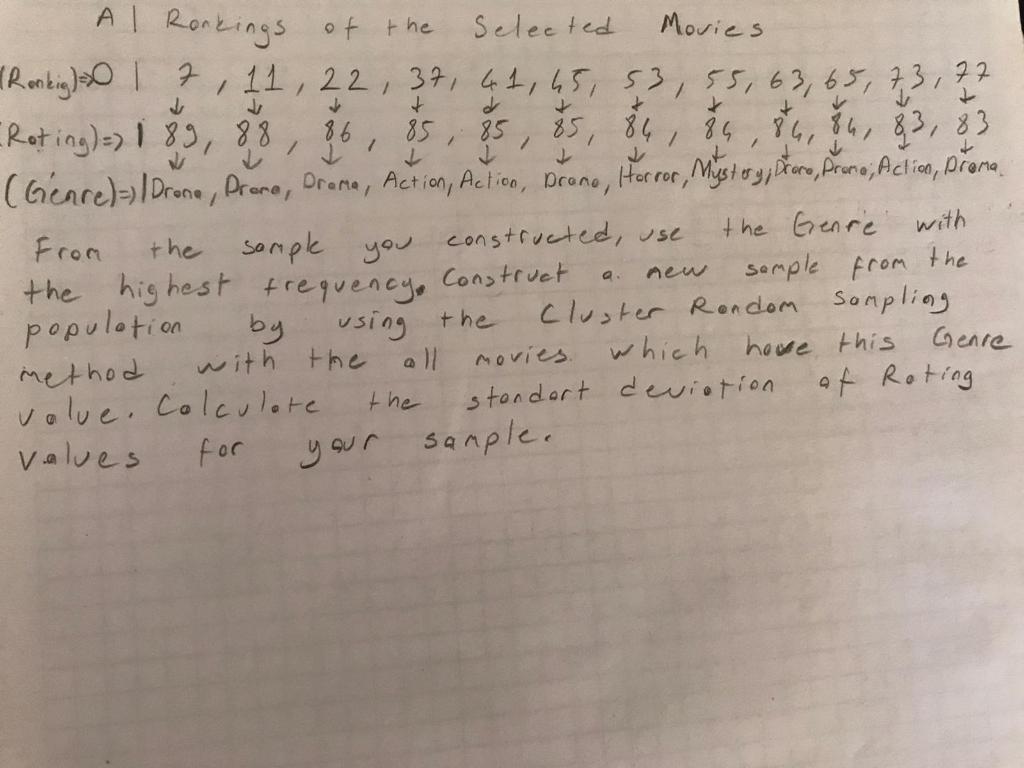 A | Rankings of the Selected Movies
(Rankig)=>0 | 7, 11, 22, 37, 41, 45, 53, 55, 63, 65, 73, 77
↓ ↓ ↓ ↓ ↓ ↓ ↓ ↓ ↓ ↓ ↓ ↓
(Rating)=> | 89, 88, 86, 85, 85, 85, 84, 84, 84, 84, 83, 83
↓ ↓ ↓ ↓ ↓ ↓ ↓ ↓ ↓ ↓ ↓ ↓
(Genre)=> | Drama, Drama, Drama, Action, Action, Drama, Horror, Mystery, Drama, Drama, Action, Drama.
From the sample you constructed, use the Genre with
the highest frequency. Construct a new sample from the
population by using the Cluster Random Sampling
method with the all movies which have this Genre
value. Calculate the standart deviation of Rating
values for your sample.